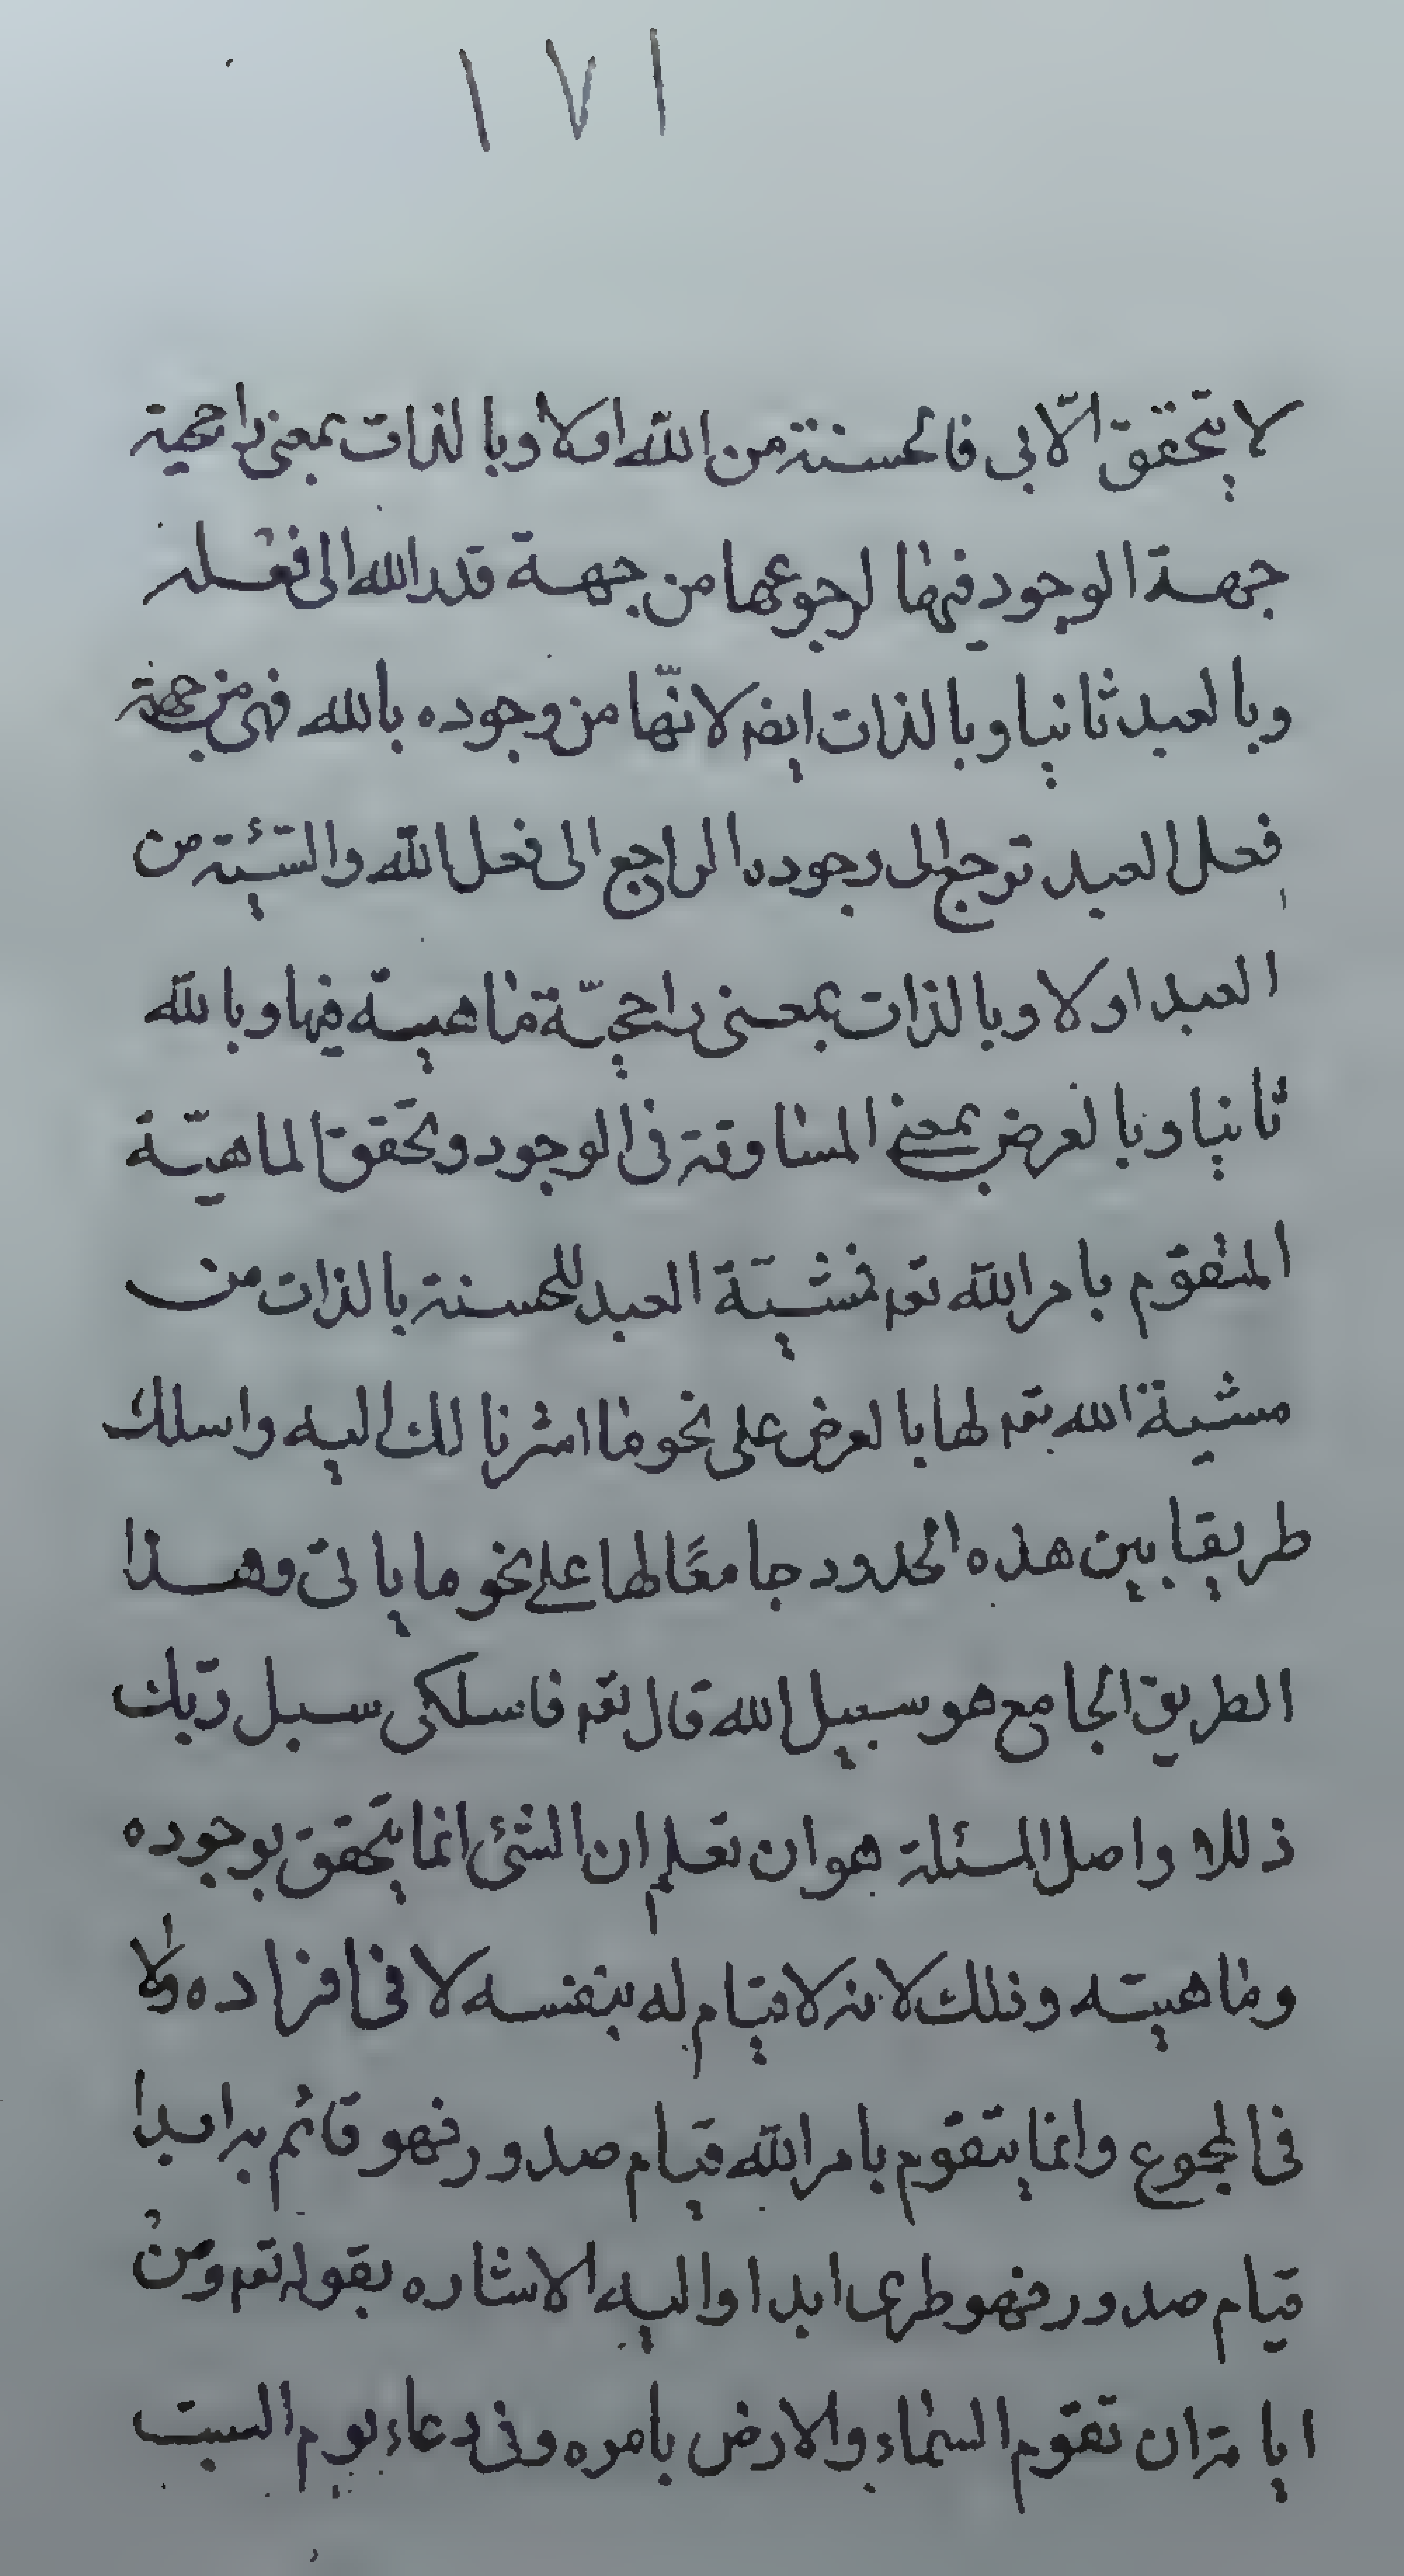 ١٧١
لا يتحقق الّا بى فالحسنة من الله اولا وبالذات بمعنى راجحية
جهة الوجود فيها لرجوعها من جهة قدر الله الى فعله
وبالعبد ثانيا وبالذات ايضا لانّها من وجوده بالله فهى من جهة
فعل العبد ترجع الى وجوده الراجع الى فعل الله والسّيئة من
العبد اولا وبالذات بمعنى راجحيّة ماهيته فيها وبالله
ثانيا وبالعرض بمعنى المساوقة فى الوجود وتحقق الماهيّة
المتقوم بامر الله تعه فمشيّة العبد للحسنة بالذات من
مشية الله تعه لها بالعرض على نحو ما اشرنا لك اليه واسلك
طريقا بين هذه الحدود جامعًا لها على نحو ما ياتى وهذا
الطريق الجامع هو سبيل الله قال تعه فاسلكى سبل ربّك
ذللا واصل المسئلة هو ان تعلم ان الشئ انما يتحقق بوجوده
وماهيته وذلك لانه لا قيام له بنفسه لا فى افراده ولا
فى المجموع وانما يتقوم بامر الله قيام صدور فهو قائم به ابدا
قيام صدور فهو طرى ابدا واليه الاشاره بقوله تعه ومن
اياته ان تقوم السماء والارض بامره وفى دعاء يوم السبت